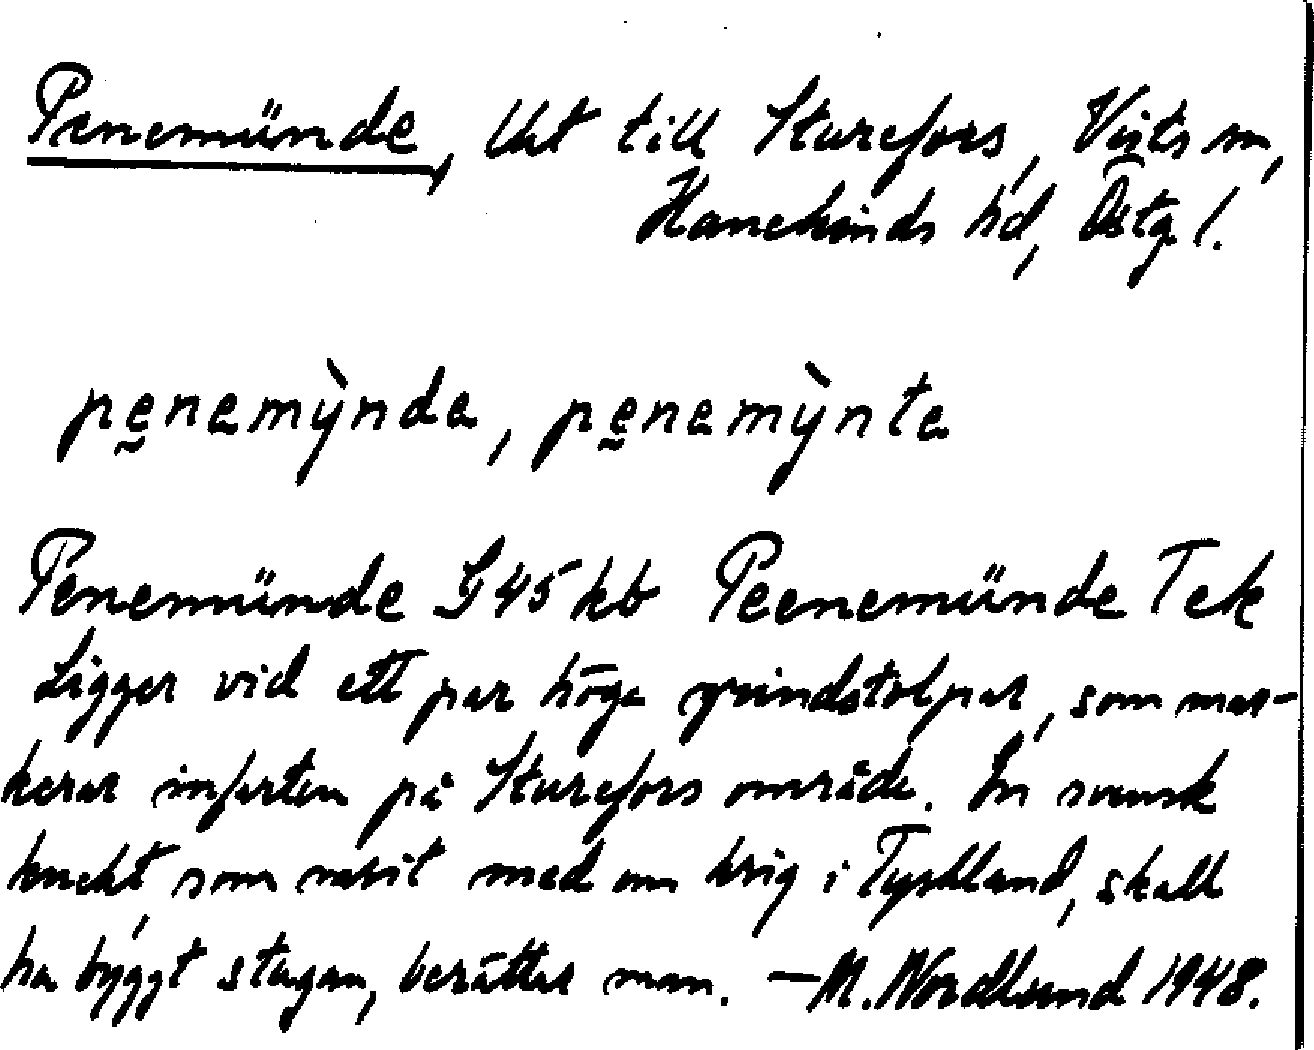 Penemünde, Uht till Sturefors, Vists sn,
Hanekinds hd, Östg l.
penemỳnda, penemỳnta
Penemünde G 45 kb Peenemünde Tek
Ligger vid ett par höga grindstolpar, som mar-
kerar infarten på Sturefors område. En svensk
knekt, som varit med om krig i Tyskland, skall
ha byggt stugan, berättar man. — M. Nordlund 1948.